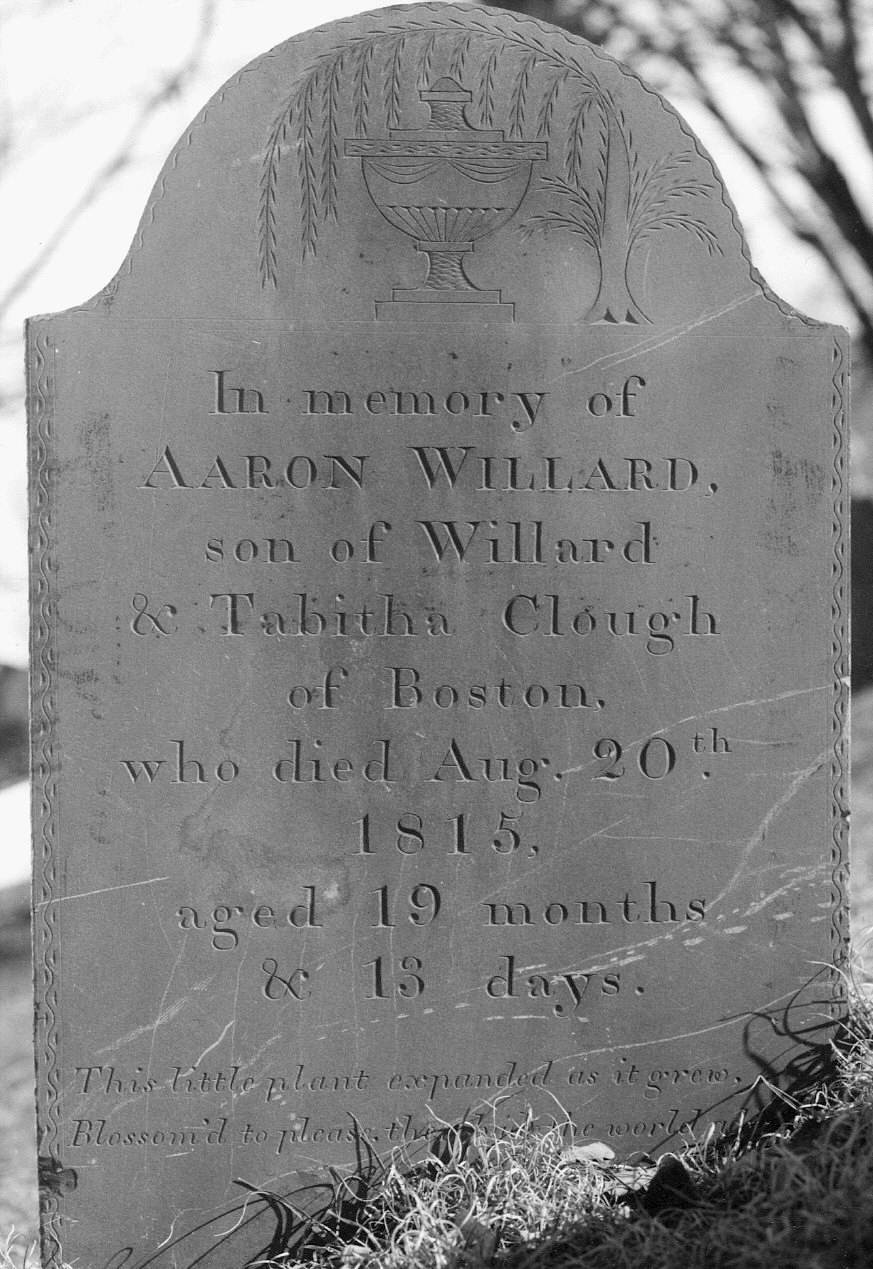 In memory of
AARON WILLARD,
son of Willard
& Tabitha Clough
of Boston,
who died Aug. 20th.
1815,
aged 19 months
& 13 days.
This little plant expanded as it grew,
Blossom'd to please, the world